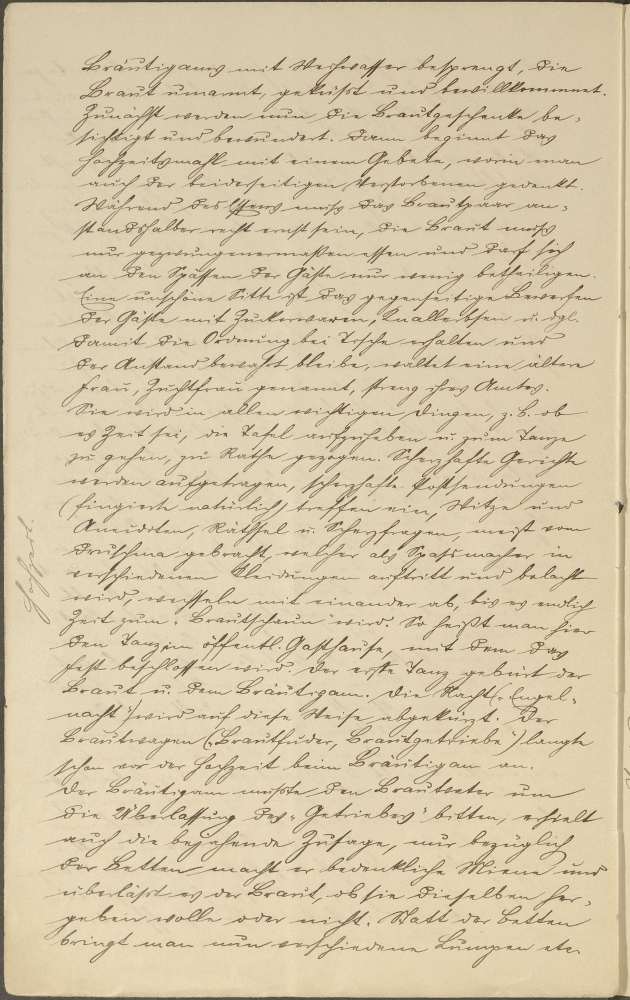 Bräutigams mit Weihwasser besprengt, die
Braut umarmt, geküßt und bewillkommnet.
Zunächst werden nun die Brautgeschenke be-
sichtigt und bewundert. Dann beginnt das
Hochzeitsmahl mit einem Gebete, worin man
auch der beiderseitigen Verstorbenen gedenkt.
Während des Essens muß das Brautpaar an-
standshalber recht ernst sein, die Braut muß
nur gezwungenermaßen essen und darf sich
an den Spässen der Gäste nur wenig betheiligen.
Eine unschöne Sitte ist das gegenseitige Bewerfen
der Gäste mit Zuckerwaren, Knallerbsen u. dgl.
Damit die Ordnung bei Tische erhalten und
der Anstand bewahrt bleibe, waltet eine ältere
Frau, Zuchtfrau genannt, streng ihres Amtes.
Sie wird in allen wichtigen Dingen, z. B. ob
es Zeit sei, die Tafel aufzuheben u. zum Tanze
zu gehen, zu Rathe gezogen. Scherzhafte Gerichte
werden aufgetragen, scherzhafte Postsendungen
(fingierte natürlich) treffen ein, Witze und
Anekdoten, Räthsel u. Scherzfragen, meist vom
Druschma gebracht, welcher als Spassmacher in
verschiedenen Kleidungen auftritt und belacht
wird, wechseln mit einander ab, bis es endlich
Zeit zum "Brautschaun" wird. So heißt man hier
den Tanz im öffentl. Gasthause, mit dem das
Fest beschlossen wird. Der erste Tanz gebürt der
Braut u. dem Bräutigam. Die Nacht ("Engel-
nacht") wird auf diese Weise abgekürzt. Der
Brautwagen ("Brautfuder, Brautgetriebe") langte
schon vor der Hochzeit beim Bräutigam an.
Der Bräutigam mußte den Brautvater um
die Überlassung des "Getriebes" bitten, erhielt
auch die bejahende Zusage, nur bezüglich
der Betten macht er bedenkliche Miene und
überläßt es der Braut, ob sie dieselben her-
geben wolle oder nicht. Statt der Betten
bringt man nun verschiedene Lumpen etc.
Hochzeit.